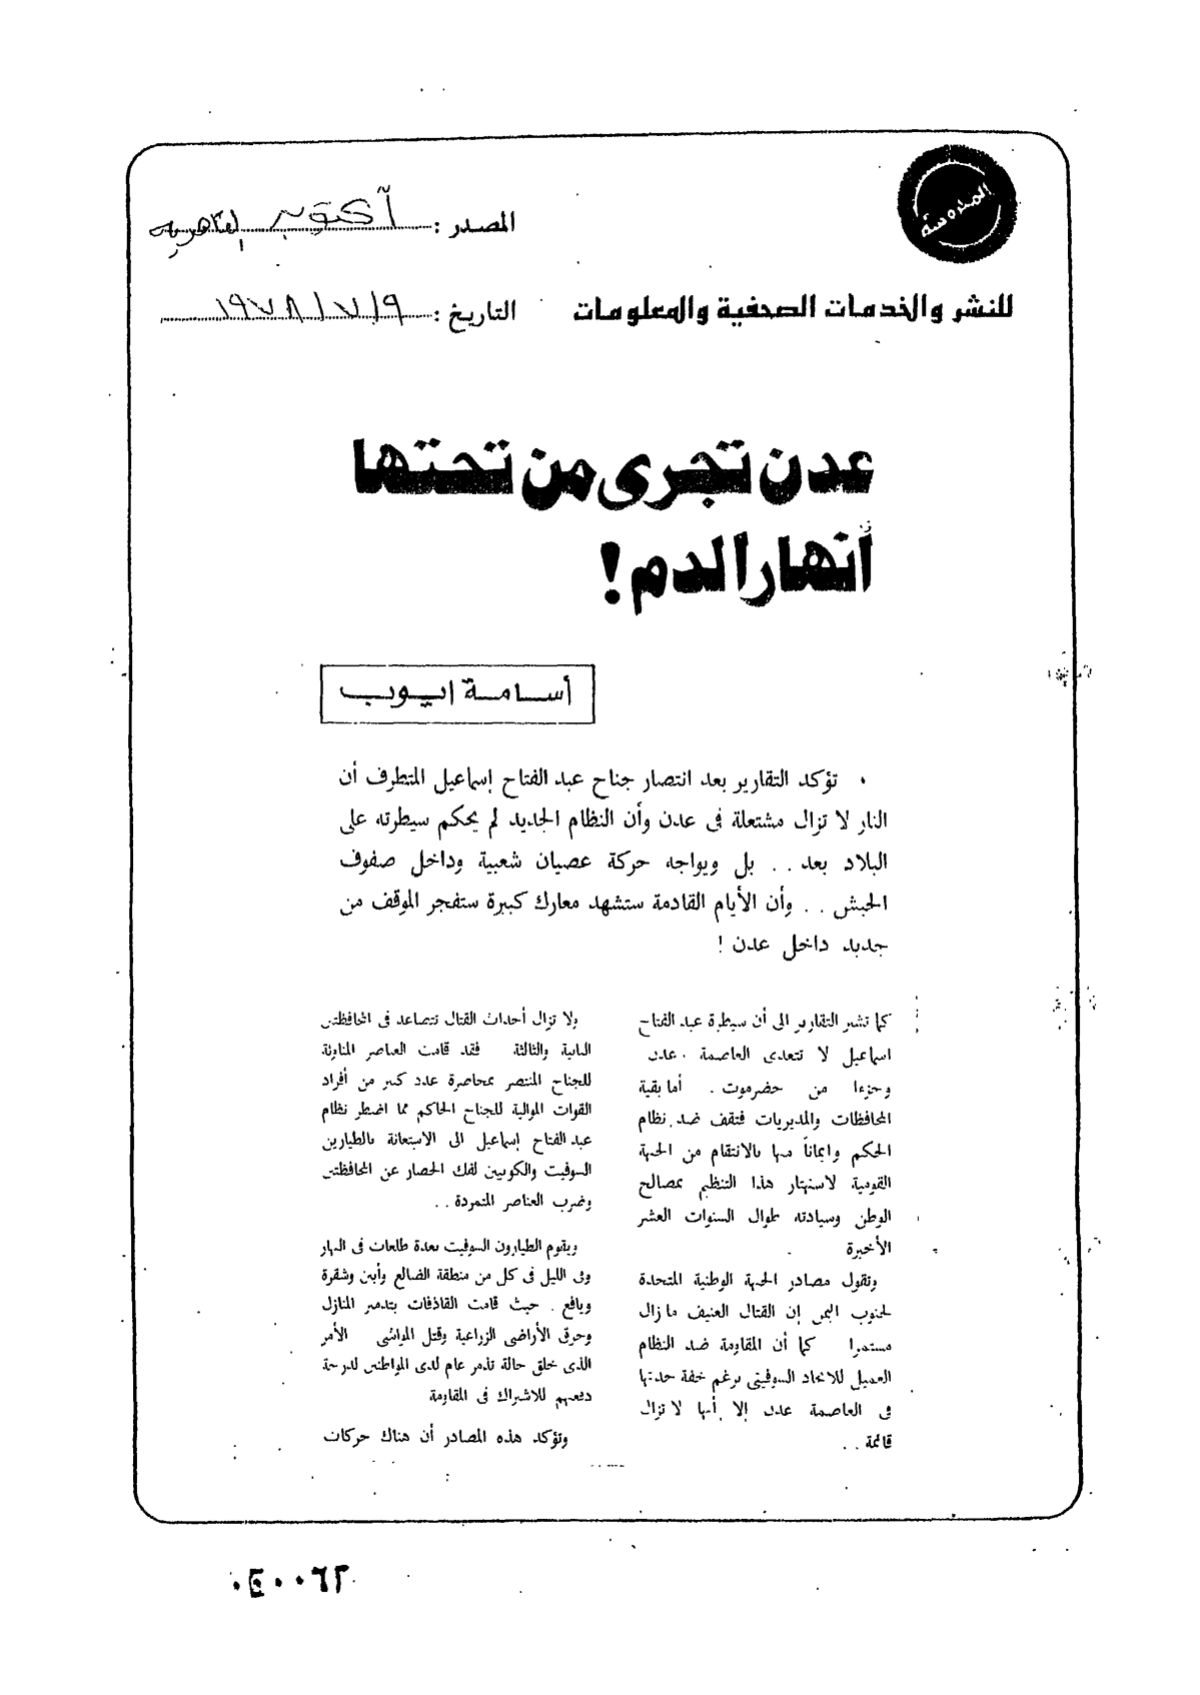 المدوسة
المصدر : أكتوبر القاهرية
للنشر والخدمات الصحفية والمعلومات
التاريخ : ٩/٧/١٩٧٨
عدن تجرى من تحتها
أنهار الدم !
أسامة ايوب
• تؤكد التقارير بعد انتصار جناح عبد الفتاح إسماعيل المتطرف أن
النار لا تزال مشتعلة فى عدن وأن النظام الجديد لم يحكم سيطرته على
البلاد بعد . . بل ويواجه حركة عصيان شعبية وداخل صفوف
الجيش . . وأن الأيام القادمة ستشهد معارك كبيرة ستفجر الموقف من
جديد داخل عدن !
كما تشير التقارير الى أن سيطرة عبد الفتاح
اسماعيل لا تتعدى العاصمة . عدن
وجزءا من حضرموت . أما بقية
المحافظات والمديريات فتقف ضد نظام
الحكم وايماناً منها بالانتقام من الجبهة
القومية لاستهتار هذا التنظيم بمصالح
الوطن وسيادته طوال السنوات العشر
الأخيرة .
وتقول مصادر الجبهة الوطنية المتحدة
لجنوب اليمن إن القتال العنيف مازال
مستمرا كما أن المقاومة ضد النظام
العميل للاتحاد السوفيتى برغم خفة حدتها
فى العاصمة عدن إلا أنها لا تزال
قائمة . .
ولا تزال أحداث القتال تتصاعد فى المحافظتين
الثانية والثالثة فقد قامت العناصر المناوئة
للجناح المنتصر بمحاصرة عدد كبير من أفراد
القوات الموالية للجناح الحاكم مما اضطر نظام
عبد الفتاح إسماعيل الى الاستعانة بالطيارين
السوفيت والكوبيين لفك الحصار عن المحافظتين
وضرب العناصر المتمردة . .
ويقوم الطيارون السوفيت بعدة طلعات فى النهار
وفى الليل فى كل من منطقة الضالع وأبين وشقرة
ويافع . حيث قامت القاذفات بتدمير المنازل
وحرق الأراضى الزراعية وقتل المواشى الأمر
الذى خلق حالة تذمر عام لدى المواطنين لدرجة
دفعتهم للاشتراك فى المقاومة
وتؤكد هذه المصادر أن هناك حركات
٠٤٠٠٦٢